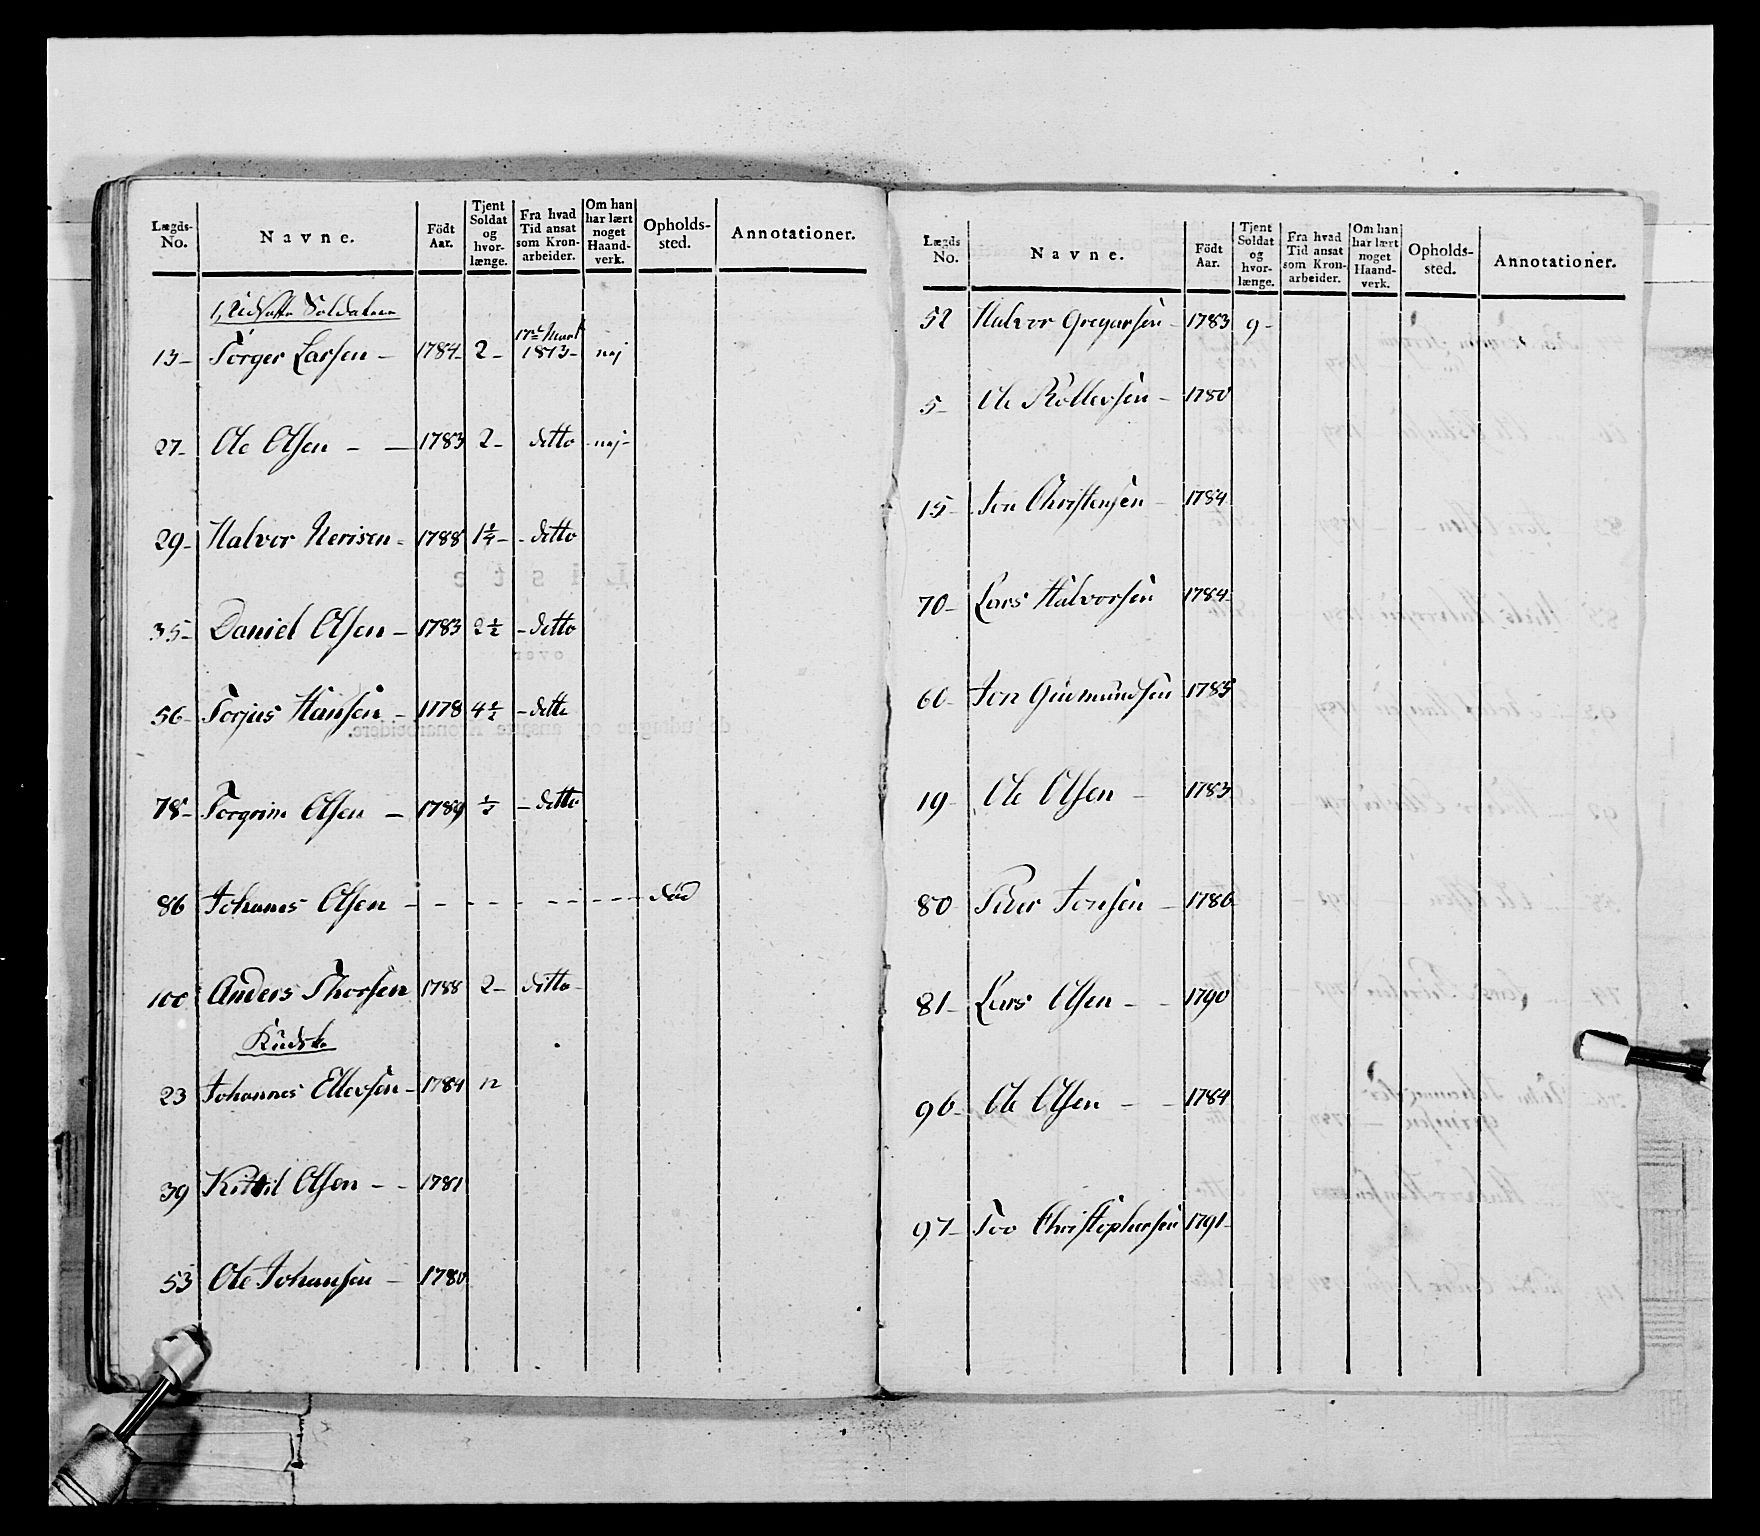 Lægds-No. Navne. Födt Aar. Tjent Soldat og hvor-længe. Fra hvad Tid ansat som Kron-arbeider. Om han har lært noget Haand-verk. Opholds-sted. Annotationer.
1, Udsatte Soldater
13- Torger Larsen - 1784- 2- 17de Mart 1813- nej
27- Ole Olsen - - 1783 2- ditto - nej-
29- Halvor Nerisen - 1788 1½- - ditto
35- Daniel Olsen - 1783 2½ - ditto
56- Torjus Hansen - 1778 4½ - ditto
78- Torgrim Olsen - 1789 ½ - ditto
86 Johanes Olsen - - - - - - - - - - död
100 Anders Thorsen 1788 2- ditto-
Kudske
23 Johannes Ellevsen - 1784 12
39 Kittil Olsen - - 1781
53 Ole Johansen - 1780
Lægds No. Navne. Födt Aar. Tjent Soldat og hvor-længe. Fra hvad Tid ansat som Kron-arbeider. Om han har lært noget Haand-verk. Opholds-sted. Annotationer.
52 Halvor Gregarsen - 1783 9-
5- Ole Rollevsen - 1780
15- Jon Christensen - 1784
70- Lars Halvorsen 1784-
60- Jon Gudmundsen 1785
19- Ole Olsen - 1783
80 Peder Jonsen - 1786
81- Lars Olsen - - 1790
96- Ole Olsen - - 1784
97- Tov Christophersen 1791-